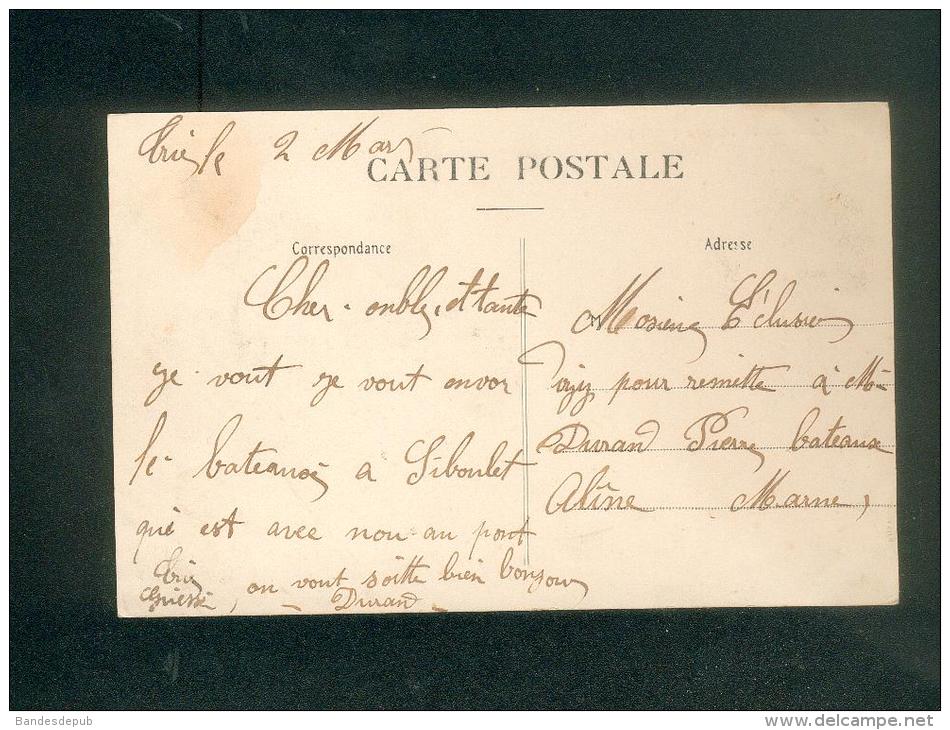 le 2 Mars
CARTE POSTALE
Correspondance
Adresse
Cher onble et tante
ge vout ge vout envor
le bateaux a Siboulet
qui est avec nou au pont
on vout soitte bien bonjour
Durand
M
Mosieur L'éclusier
pour remette à Mr
Durand Pierre bateaux
Aline Marne
Bandesdepub
www.delcampe.net